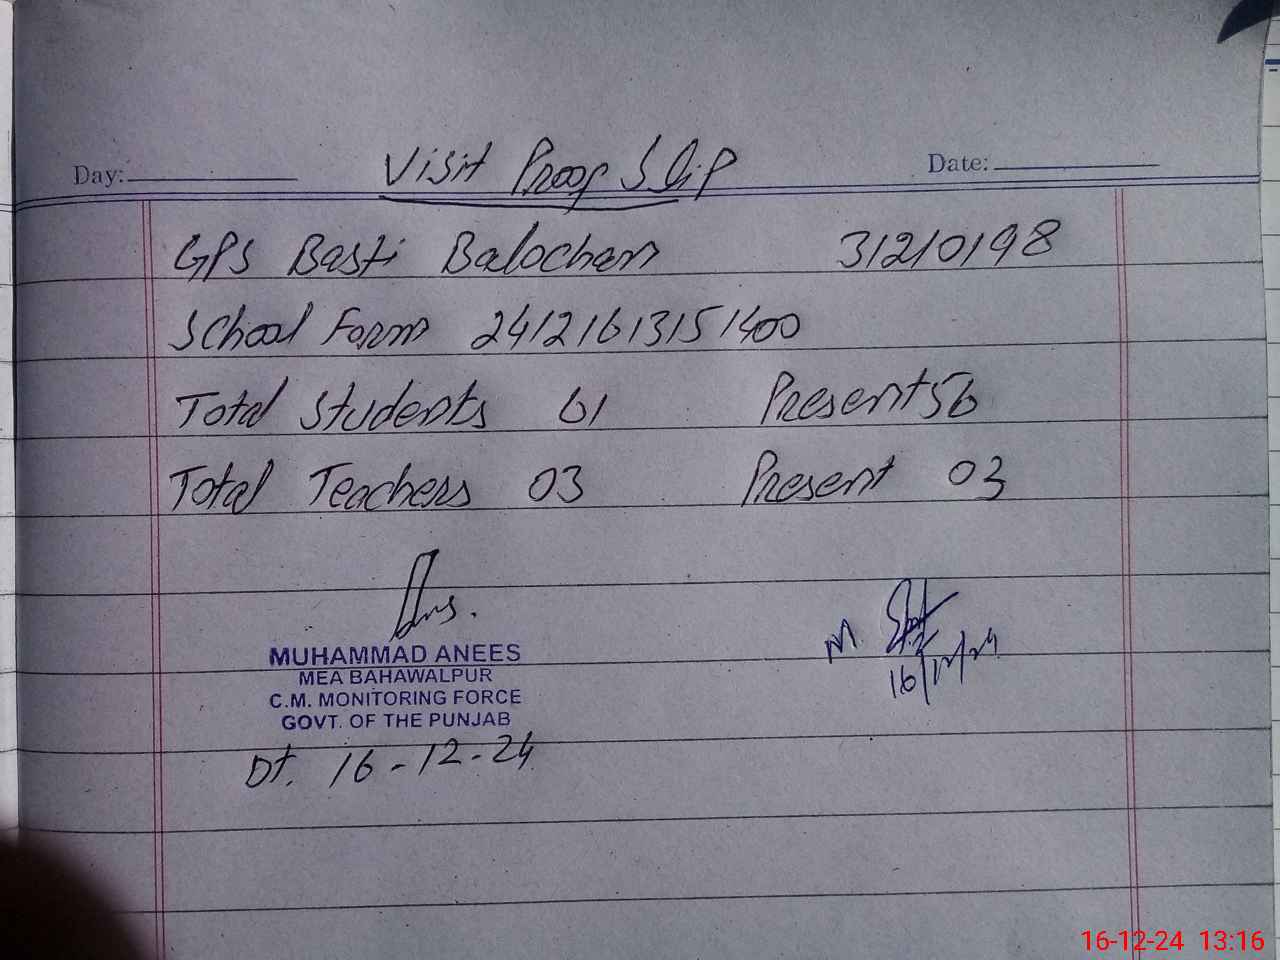 Day: Visit Proof Slip Date:
GPS Basti Balochan 31210198
School Form 24121613151400
Total Students 61 Present 56
Total Teachers 03 Present 03
MUHAMMAD ANEES
MEA BAHAWALPUR
C.M. MONITORING FORCE
GOVT. OF THE PUNJAB
Dt. 16-12-24
M.
16/12/24
16-12-24 13:16